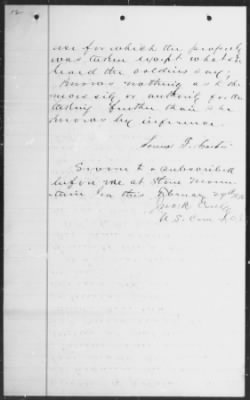 use for which the property
was taken except what he
heard the soldiers say,
Knows nothing as to the
necessity or authority for the
taking further than he
knows by inference.
James F.
Sworn to & subscribed
before me at Stone Moun
tain Ga this February 29th
U.S. Com